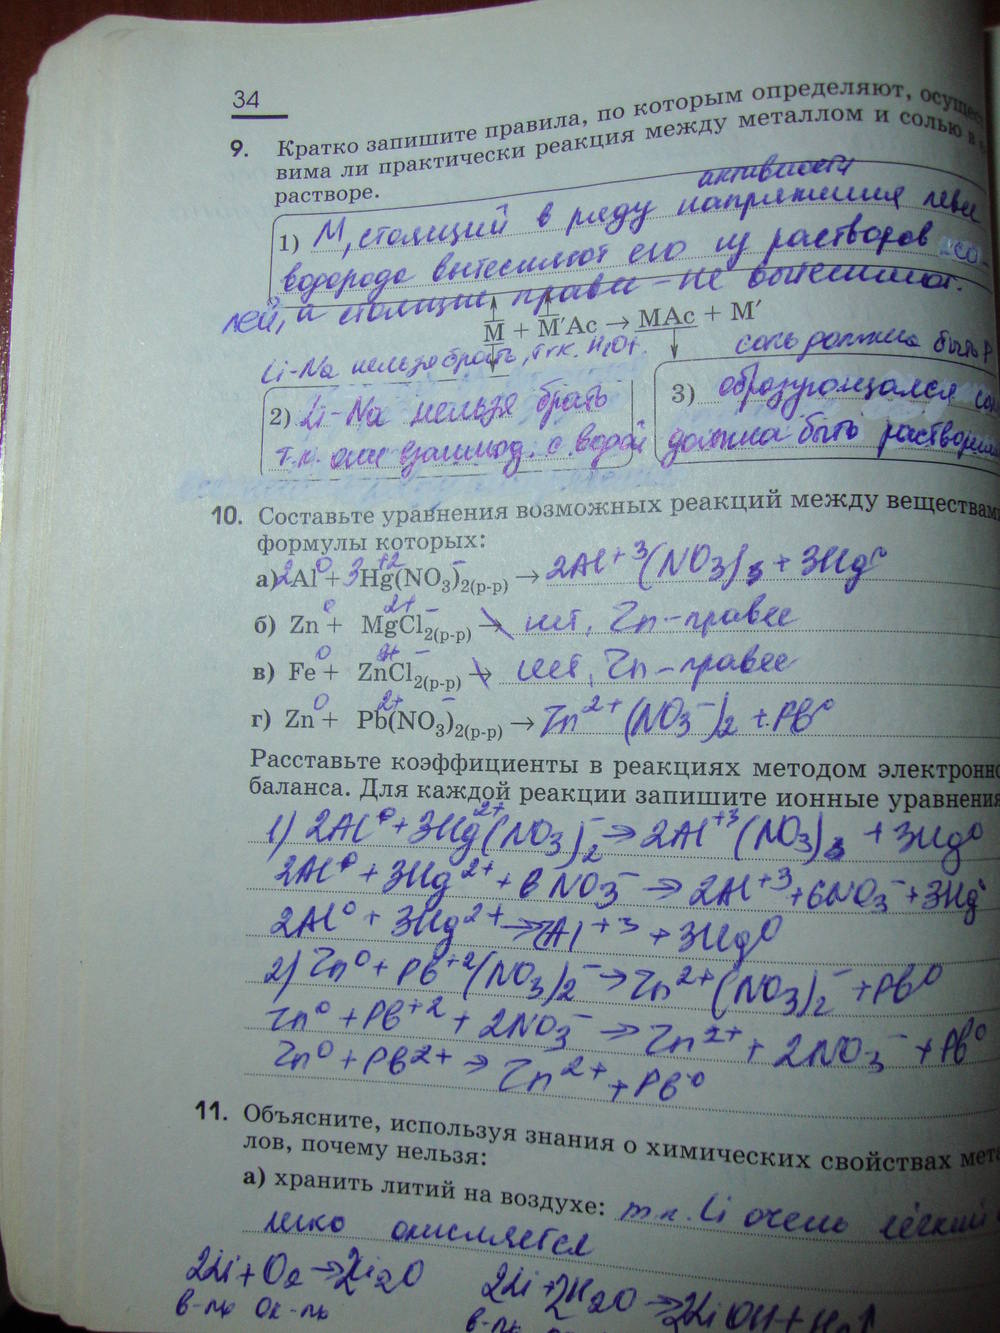 34
9. Кратко запишите правила, по которым определяют, осущест
вима ли практически реакция между металлом и солью в
растворе.
активности
1) М, стоящий в ряду напряжения левее
водорода вытесняют его из растворов со-
лей, а стоящие правее – не вытесняют.
M + M′Ac → MAc + M′
Li-Na нельзя брать, т.к. H₂O↑.
соль должна быть р
2) Li-Na нельзя брать
т.к. они взаимод. с водой
3) образующаяся соль
должна быть растворима
10. Составьте уравнения возможных реакций между веществами
формулы которых:
а) 2Al⁰ + 3Hg⁺²(NO₃)⁻₂(р-р) → 2Al⁺³(NO₃)₃ + 3Hg⁰
б) Zn⁰ + Mg²⁺Cl⁻₂(р-р) → нет, Zn – правее
в) Fe⁰ + Zn²⁺Cl⁻₂(р-р) → нет, Zn – правее
г) Zn⁰ + Pb²⁺(NO₃)⁻₂(р-р) → Zn²⁺(NO₃⁻)₂ + Pb⁰
Расставьте коэффициенты в реакциях методом электронно
баланса. Для каждой реакции запишите ионные уравнения
1) 2Al⁰ + 3Hg²⁺(NO₃)₂⁻ → 2Al⁺³(NO₃)₃ + 3Hg⁰
2Al⁰ + 3Hg²⁺ + 6NO₃⁻ → 2Al⁺³ + 6NO₃⁻ + 3Hg⁰
2Al⁰ + 3Hg²⁺ → 2Al⁺³ + 3Hg⁰
2) Zn⁰ + Pb⁺²(NO₃)₂⁻ → Zn²⁺(NO₃)₂⁻ + Pb⁰
Zn⁰ + Pb⁺² + 2NO₃⁻ → Zn²⁺ + 2NO₃⁻ + Pb⁰
Zn⁰ + Pb²⁺ → Zn²⁺ + Pb⁰
11. Объясните, используя знания о химических свойствах мета
лов, почему нельзя:
а) хранить литий на воздухе: т.к. Li очень лёгкий
легко окисляется
2Li + O₂ → 2Li₂O 2Li + 2H₂O → 2LiOH + H₂↑
в-ль ок-ль в-ль